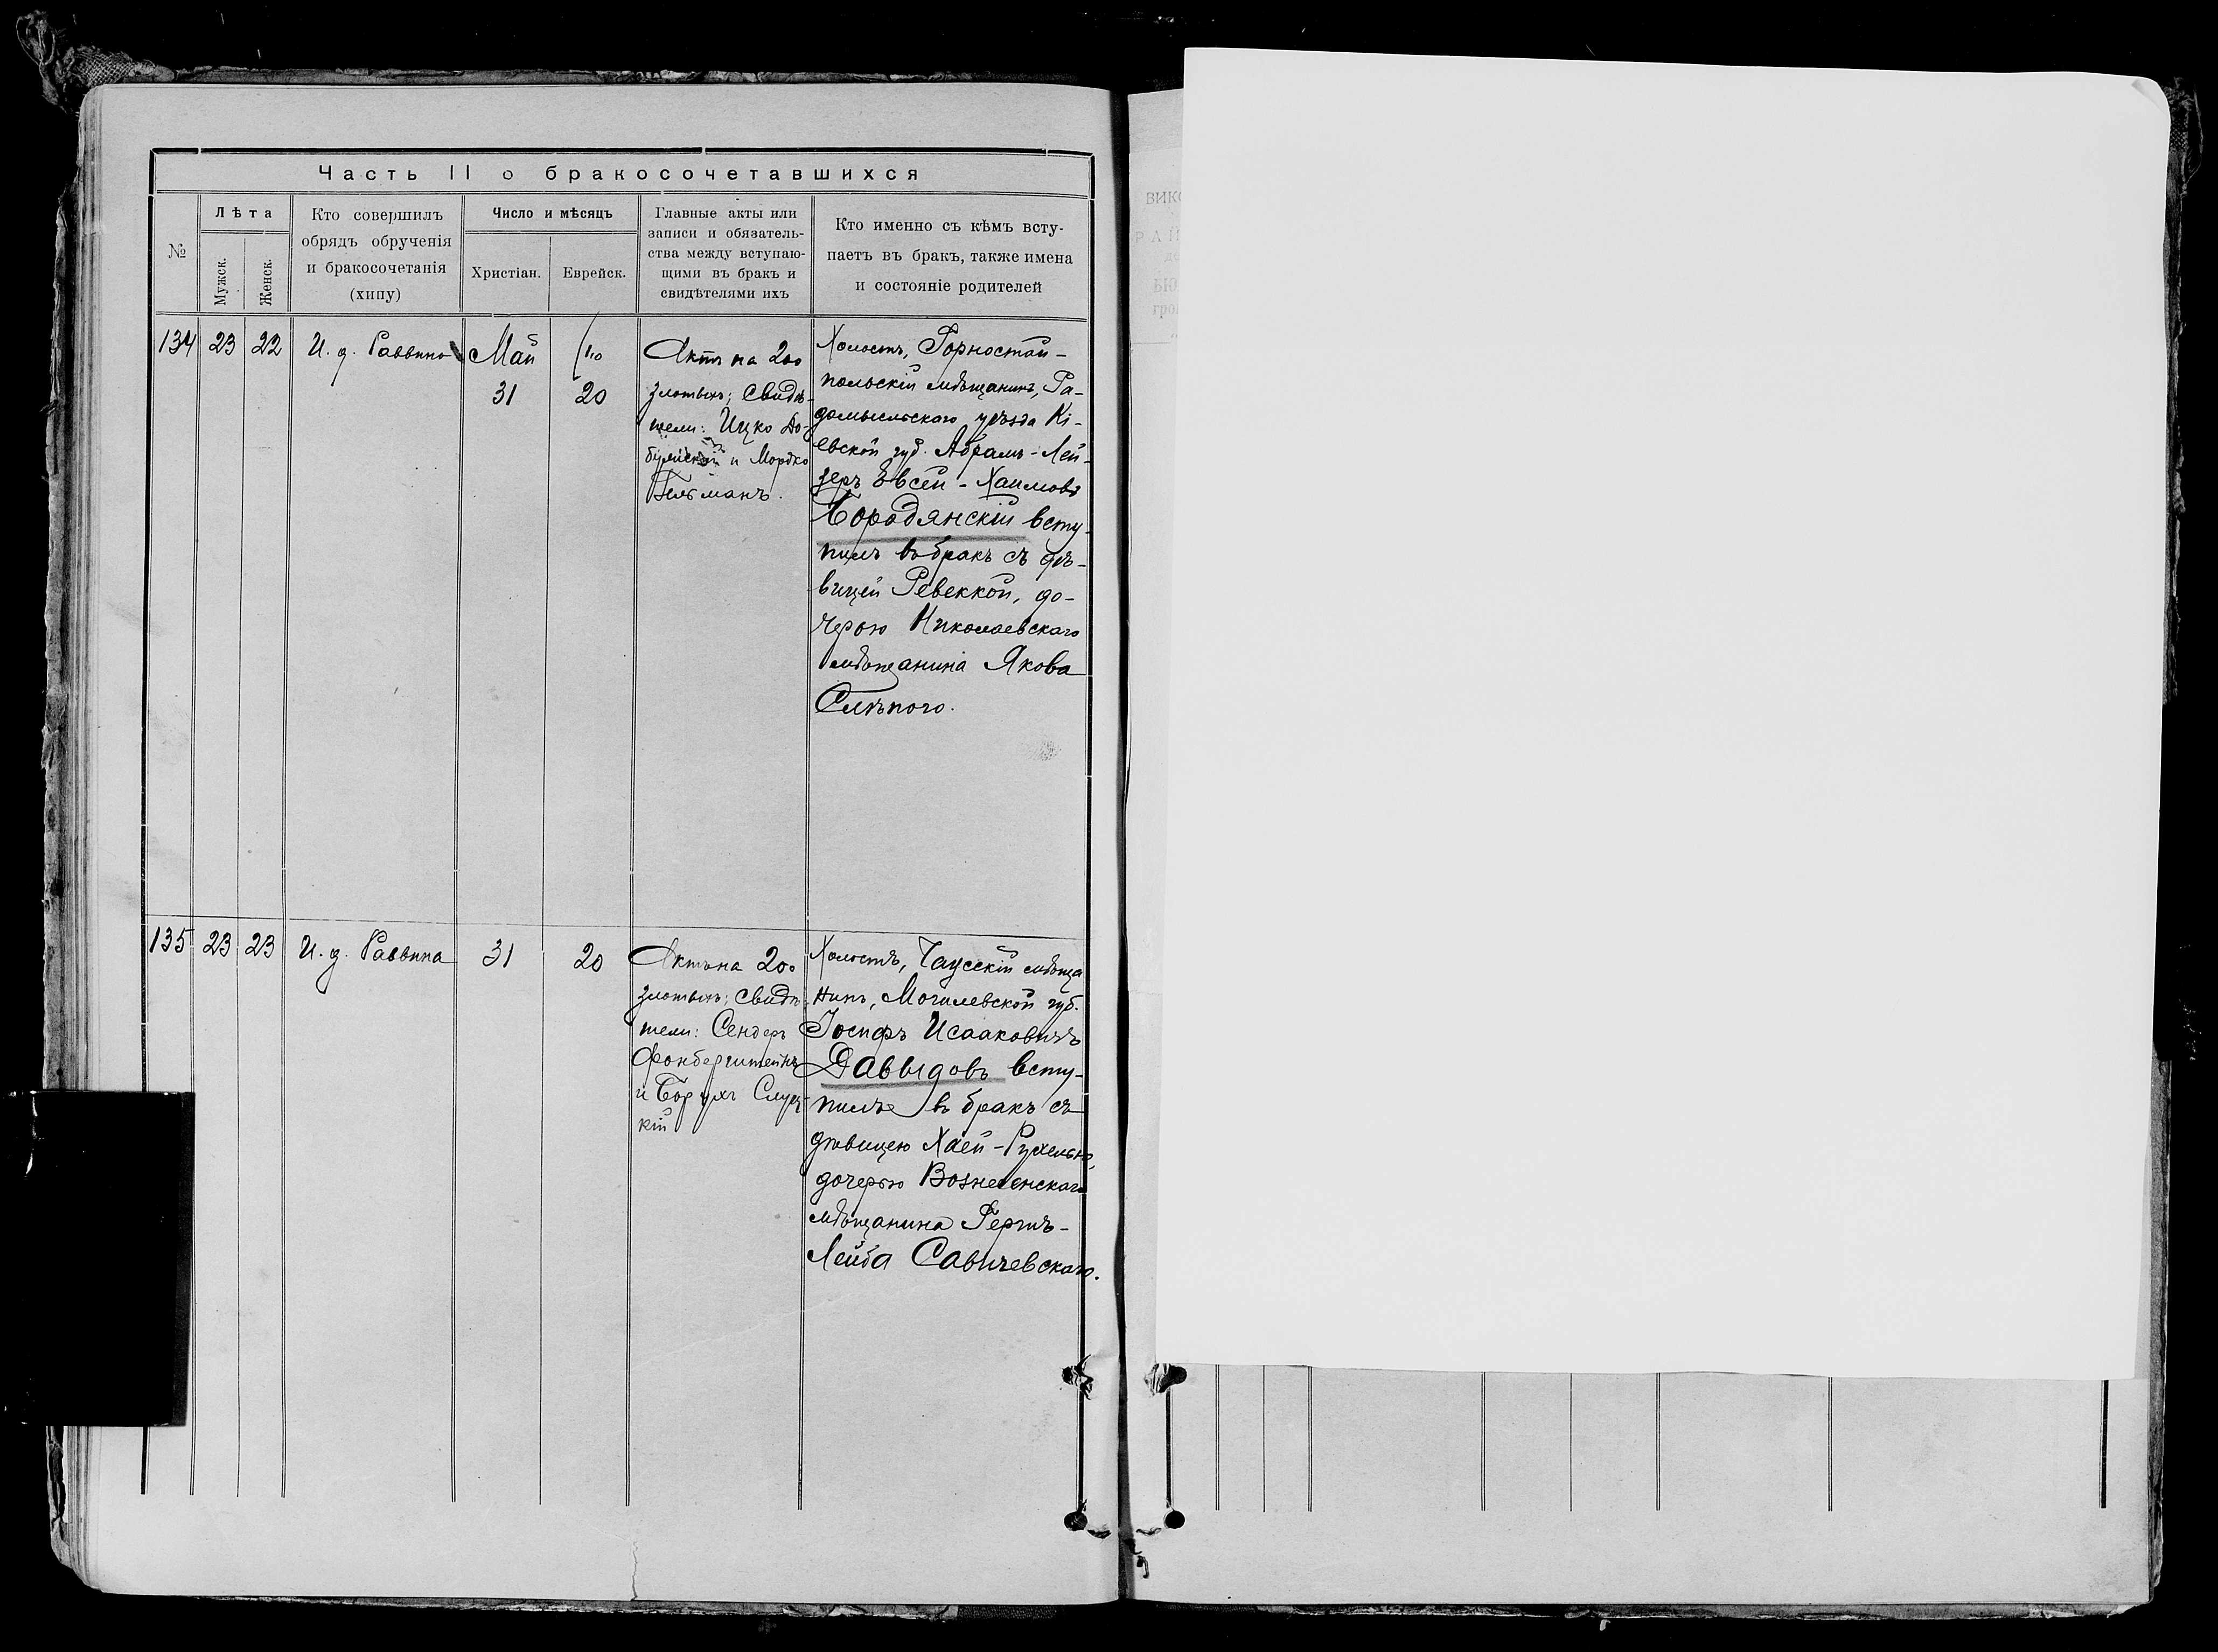 Часть II о бракосочетавшихся
№
Лѣта
Мужск.
Женск.
Кто совершилъ
обрядъ обрученія
и бракосочетанія
(хипу)
Число и мѣсяцъ
Христіан.
Еврейск.
Главные акты или
записи и обязатель-
ства между вступаю-
щими въ бракъ и
свидѣтелями ихъ
Кто именно съ кѣмъ всту-
паетъ въ бракъ, также имена
и состояніе родителей
134 23 22
И. д. Раввина
Май
31
20
Актъ на 200
злотыхъ; Свидѣ-
тели: Ицко
и Мордко
Гельманъ.
Холостъ, Горностай-
польскій мѣщанинъ, Ра-
домысльскаго уѣзда Кі-
евской губ. Абрамъ-Лей-
зеръ Евсей-Хаимовъ
Бородянскій всту-
пилъ въ бракъ съ дѣ-
вицей Ревеккой, до-
черью Николаевскаго
мѣщанина Якова
Слѣпого.
135 23 23
И. д. Раввина
31
20
Актъ на 200
злотыхъ; Свидѣ-
тели: Сендеръ
Фонбергштейнъ
и Борухъ Слуц-
кій
Холостъ, Чаусскій мѣща
нинъ, Могилевской губ.
Іосифъ Исааковичъ
Давыдовъ всту-
пилъ въ бракъ съ
дѣвицею Хаей-Рухелью,
дочерью Вознесенскаго
мѣщанина Гершъ-
Лейба Савичевскаго.
ВИК
РАЇ
де
ЬЮ
гро